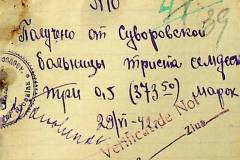 Получено от Суворовской
больницы триста семдесят
три 0,5 (373 50) марок
29/VI-42
Verificarde Not
Ziua